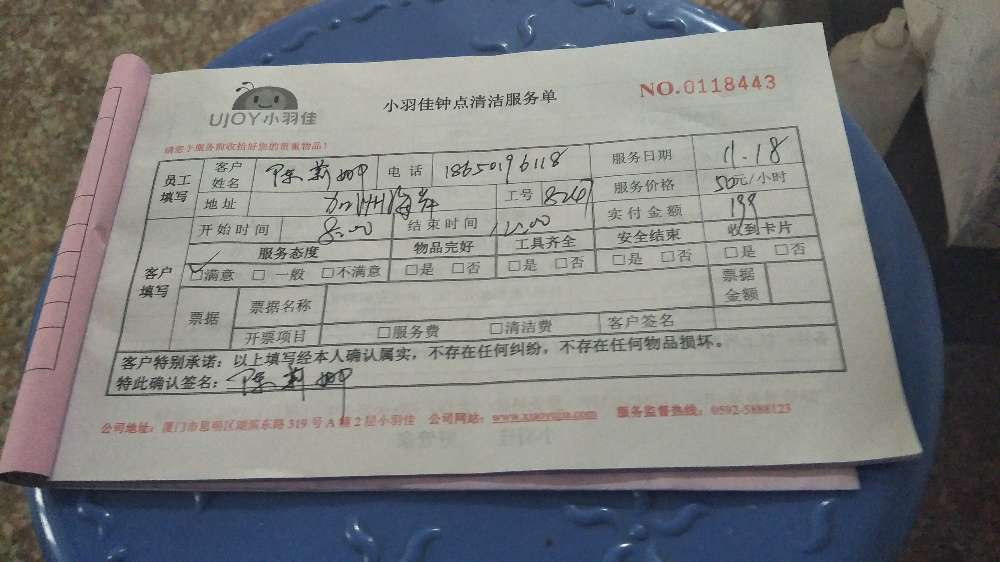 UJOY小羽佳
小羽佳钟点清洁服务单
NO.0118443
请您于服务前收拾好您的贵重物品！
员工填写 客户姓名 陈莉娜 电话 18650196118 服务日期 11.18
地址 工号 服务价格 50元/小时
开始时间 8:00 结束时间 12:00 实付金额 199
客户填写 服务态度 物品完好 工具齐全 安全结束 收到卡片
□满意 □一般 □不满意 □是 □否 □是 □否 □是 □否 □是 □否
票据 票据名称 票据金额
开票项目 □服务费 □清洁费 客户签名
客户特别承诺：以上填写经本人确认属实，不存在任何纠纷，不存在任何物品损坏。
特此确认签名：陈莉娜
公司地址：厦门市思明区湖滨东路319号A幢2层小羽佳 公司网站：www.xiaoyujia.com 服务监督热线：0592-5888123